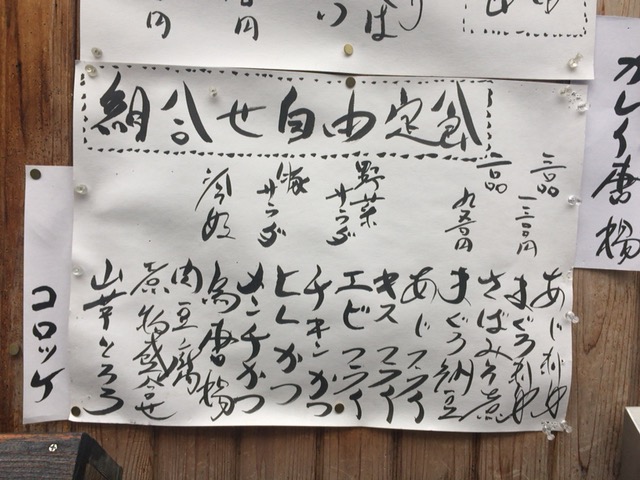 カレイ唐揚
組合せ自由定食
三品 一三〇〇円
二品 九五〇円
野菜サラダ
豚サラダ
冷奴
あじ刺身
まぐろ刺身
さばみそ煮
まぐろ納豆
あじフライ
キスフライ
エビフライ
チキンかつ
ヒレかつ
メンチかつ
鳥唐揚
肉豆腐
煮物盛合せ
山芋とろろ
コロッケ